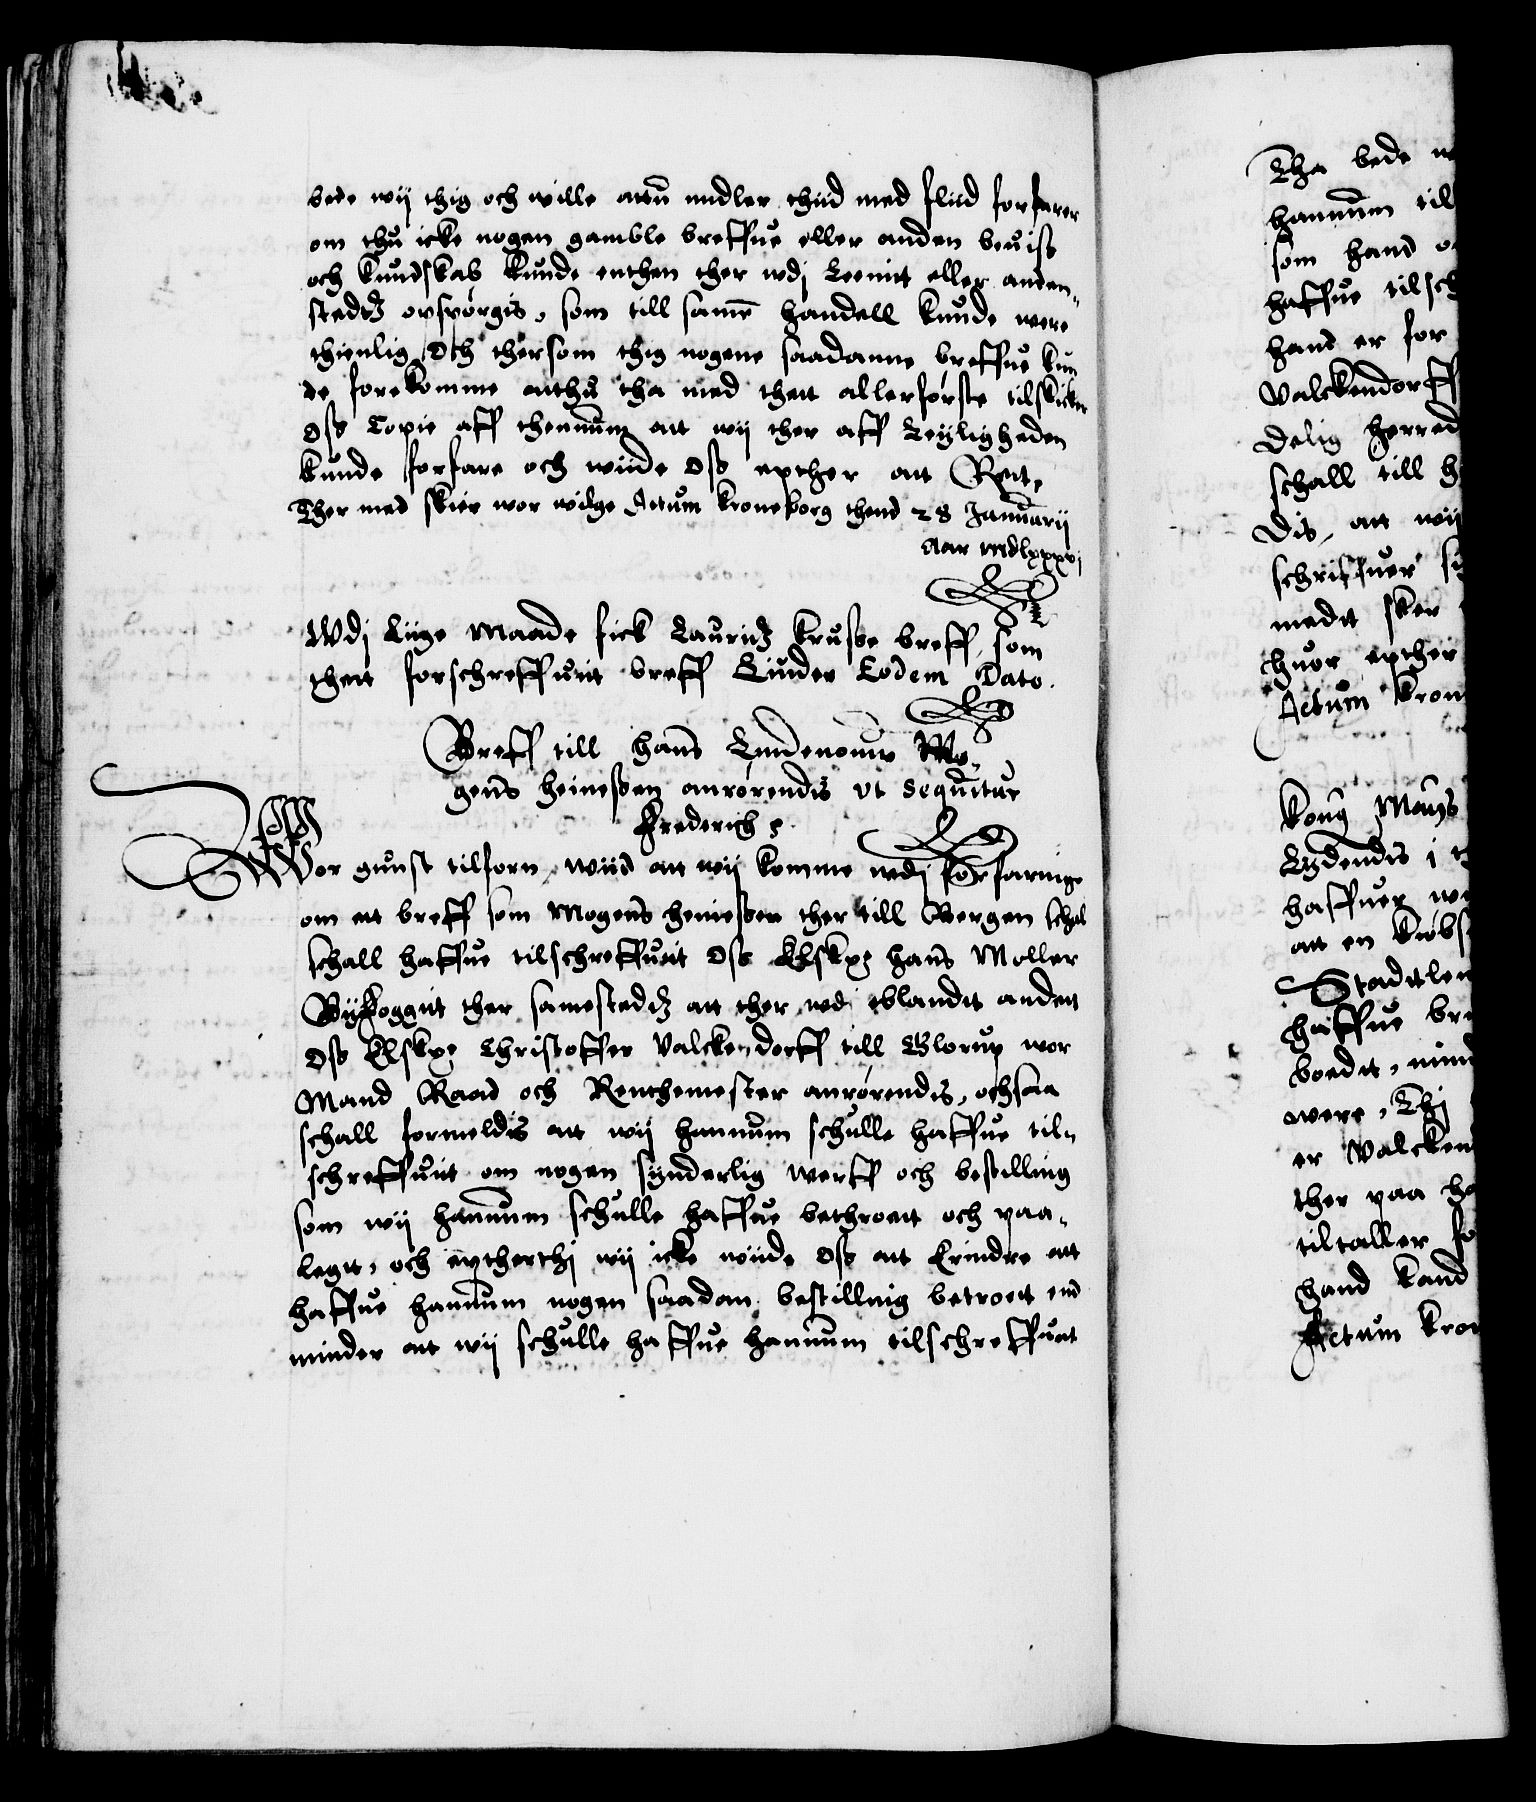 bede wij thig och wille attu midler thiid med fliid forfarer
om thu icke nogen gamble breffue eller anden beuiss
och kundskab kunde enthen ther wdj Leenit eller anden-
stedtz opspørgis, som till same handell kunde were
thienlig, Och thersom thig nogene saadanne breffue kun
de forekomme atthu tha med thett allerførste tilskicker
Oss Copie aff thennum att wij ther aff Leyligheden
kunde forfare och wiide Oss epther att Rett,
Ther med skier wor wilge Actum Kroneborg thend 28 Januarij
Aar mdlxxxvj
Wdj Liige Maade fick Lauridz Krusse breff, som
thett forschreffuit breff Liuder Eodem Dato.
Breff till Hans Lindenouw Mo-
gens Heinessen anrørendis vt sequitur
Frederich
Wor gunst tilforn, wiid att wij komme wdj forfaringe
om ett breff som Mogens Heinessen ther till Bergen schal
schall haffue tilschreffuit Oss Elskl: Hans Moller
Byfoggit ther samestedtz att ther wdj iblandt andett
Oss Elskl: Christoffer Valckendorff till Glorup wor
Mand Raad och Renthemester anrørendis, ochsaa
schall formeldis att wij hannum schulle haffue til-
schreffuit om nogen synderlig werff och bestilling
som wij hannum schulle haffue bethroett och paa-
legt, och eptherthj wij icke wiide Oss att Erindre att
haffue hannum nogen saadan bestilling betroett end
minder att wij schulle haffue hannum tilschreffuet
Tha bede
hannum til
som hand
haffue tilsch
hand er for
Valckendorff
Delig herred
schall till
Dis, att wij
schriffuer
medt sker
huor epther
Actum Kron
Kong Mayts
Lydendis i
haffuer
att en kiøbs
Stadtlen
haffue bre
boedt, mind
were, Thj
er Valcken
ther paa
tiltaller
hand kand
Actum Kron